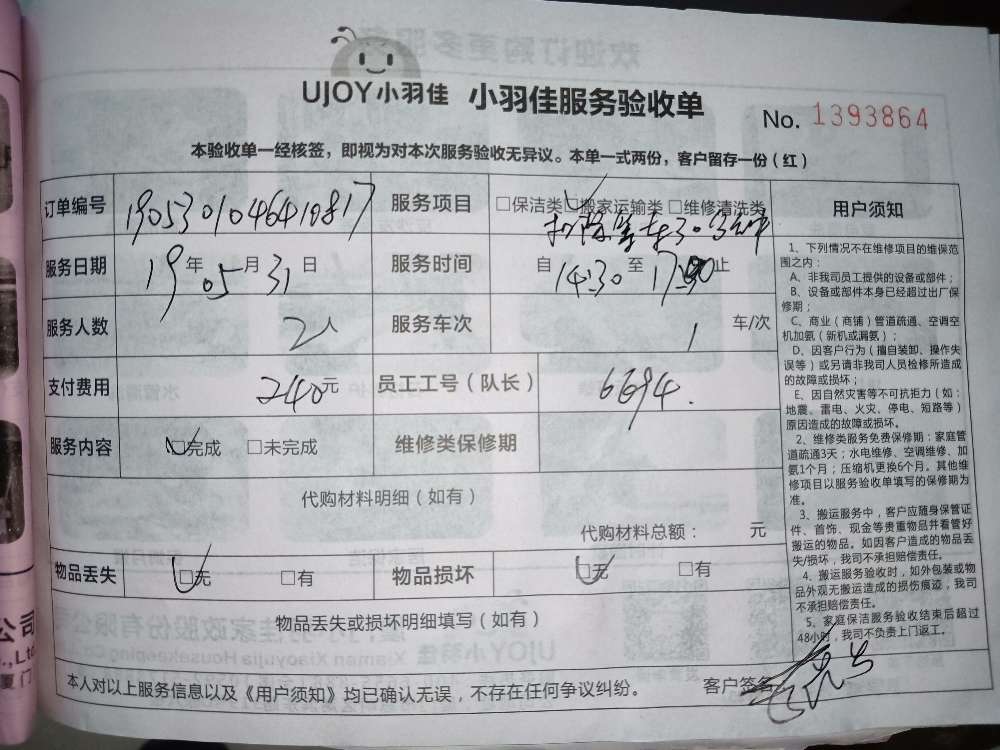 UJOY小羽佳 小羽佳服务验收单
No. 1393864
本验收单一经核签，即视为对本次服务验收无异议。本单一式两份，客户留存一份（红）
订单编号 服务项目 □保洁类 □搬家运输类 □维修清洗类
服务日期 19年05月31日 服务时间 自14:30至17:00止
服务人数 2人 服务车次 1 车/次
支付费用 240元 员工工号（队长） 6694.
服务内容 □完成 □未完成 维修类保修期
代购材料明细（如有）
代购材料总额： 元
物品丢失 □无 □有 物品损坏 □无 □有
物品丢失或损坏明细填写（如有）
本人对以上服务信息以及《用户须知》均已确认无误，不存在任何争议纠纷。 客户签名
用户须知
1、下列情况不在维修项目的维保范
围之内：
A、非我司员工提供的设备或部件；
B、设备或部件本身已经超过出厂保
修期；
C、商业（商铺）管道疏通、空调空
机加氨（新机或漏氨）；
D、因客户行为（擅自装卸、操作失
误等）或另请非我司人员检修所造成
的故障或损坏；
E、因自然灾害等不可抗拒力（如：
地震、雷电、火灾、停电、短路等）
原因造成的故障或损坏。
2、维修类服务免费保修期：家庭管
道疏通3天；水电维修、空调维修、加
氨1个月；压缩机更换6个月。其他维
修项目以服务验收单填写的保修期为
准。
3、搬运服务中，客户应随身保管证
件、首饰、现金等贵重物品并看管好
搬运的物品。如因客户造成的物品丢
失/损坏，我司不承担赔偿责任。
4、搬运服务验收时，如外包装或物
品外观无搬运造成的损伤痕迹，我司
不承担赔偿责任。
5、家庭保洁服务验收结束后超过
48小时，我司不负责上门返工。
公司
.,Ltd
厦门